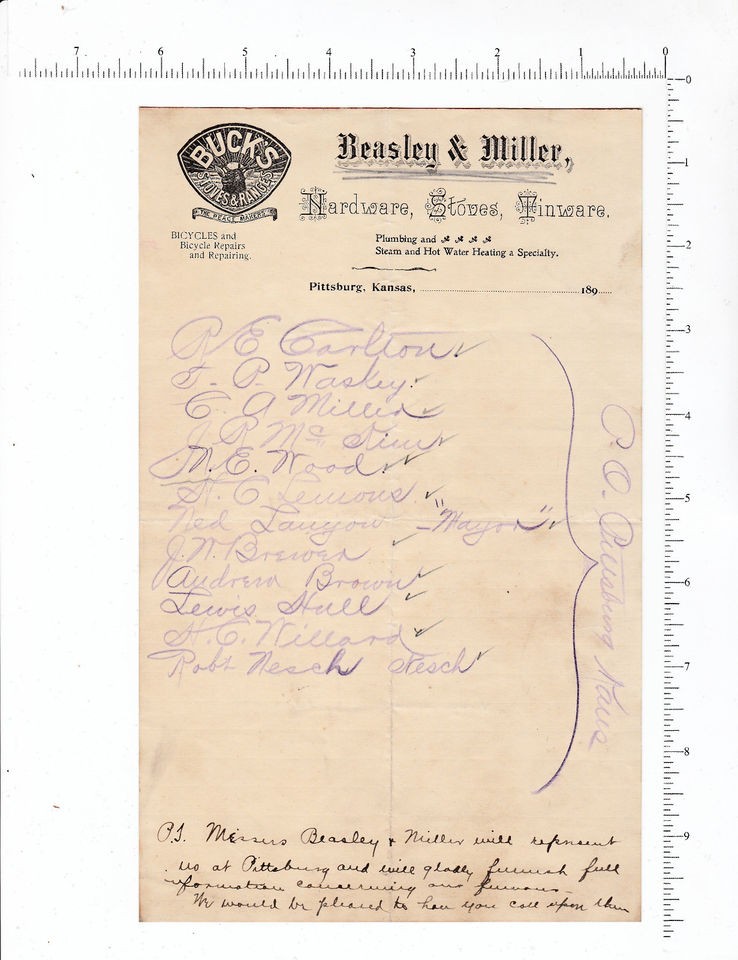 7 6 5 4 3 2 1 0
0
1
2
3
4
5
6
7
8
9
BUCK'S
STOVES & RANGES
"THE PEACE MAKERS"
BICYCLES and
Bicycle Repairs
and Repairing.
Beasley & Miller,
Hardware, Stoves, Tinware.
Plumbing and
Steam and Hot Water Heating a Specialty.
Pittsburg, Kansas, 189
R E Carlton
P. Waskey
C. A Miller
J. R Mc
M. E. Wood
H. C Lemons
Ned Lanyon - "Mayor"
J. W. Brewer
Andrew Brown
Lewis Hull
H. C. Willard
Robt Nesch Nesch
P. O. Pittsburg Kans
P.S. Messers Beasley & Miller will represent
us at Pittsburg and will gladly furnish full
information concerning our furnaces
We would be pleased to have you call upon them